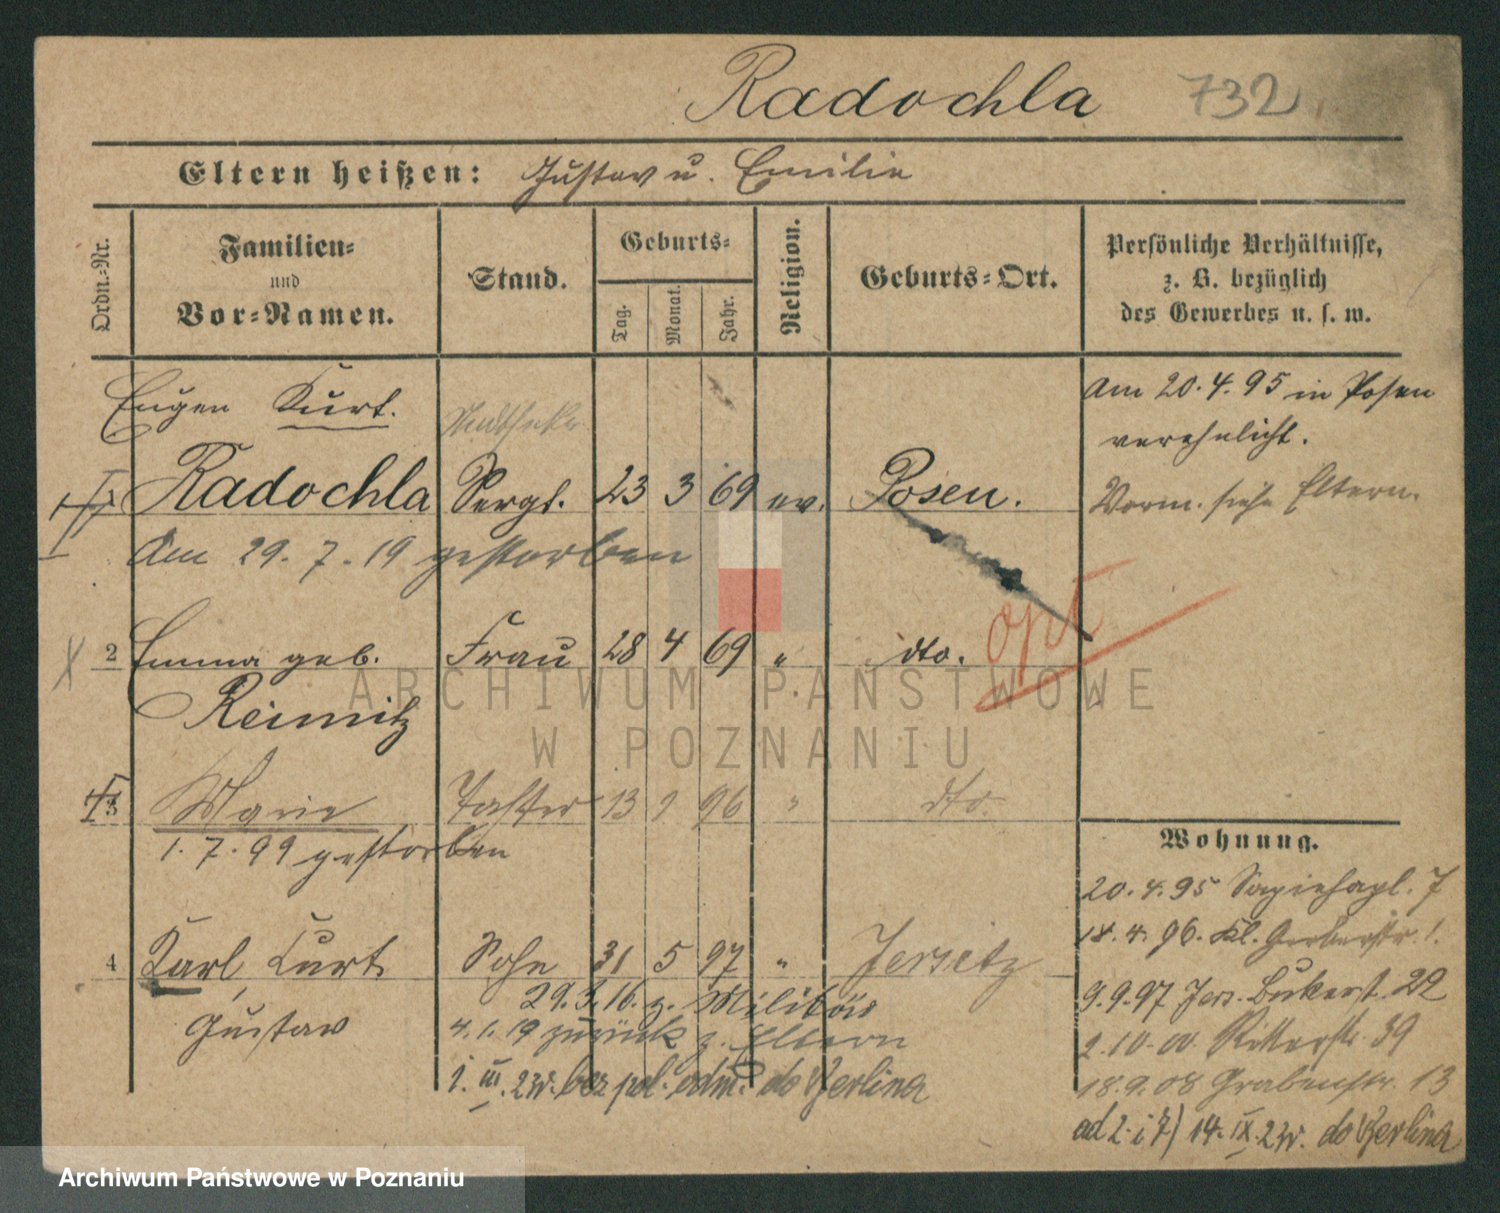 Radochla 732
Eltern heißen: Gustav u. Emilie
Ordn.-Nr.
Familien-
und
Vor-Namen.
Stand.
Geburts-
Tag.
Monat.
Jahr.
Religion.
Geburts-Ort.
Persönliche Verhältnisse,
z. B. bezüglich
des Gewerbes u. s. w.
Eugen Kurt.
Radochla Sergt. 23 3 69 ev. Posen.
Am 29. 7. 19 gestorben
Am 20. 4. 95 in Posen
verehelicht.
Vorm. siehe Eltern.
opt
2 Emma geb. Frau 28 4 69 " dto.
Reimitz
3 Marie Tochter 13 1 96 " dto.
1. 7. 99 gestorben
4 Karl, Kurt Sohn 31 5 97 " Jersitz
Gustav
29. 3. 16. z. Militär
4. 1. 19 zurück z. Eltern
1. III. 2 do Berlina
Wohnung.
20. 4. 95 Sapiehapl. 7
18. 4. 96. Kl. Gerberstr. 1.
9. 9. 97 Jers. Bukerst. 22
2. 10. 00. Ritterstr. 39
18. 9. 08 Grabenstr. 13
ad 2. i 7) 14. IX. 2 do Berlina
ARCHIWUM PAŃSTWOWE
W POZNANIU
Archiwum Państwowe w Poznaniu